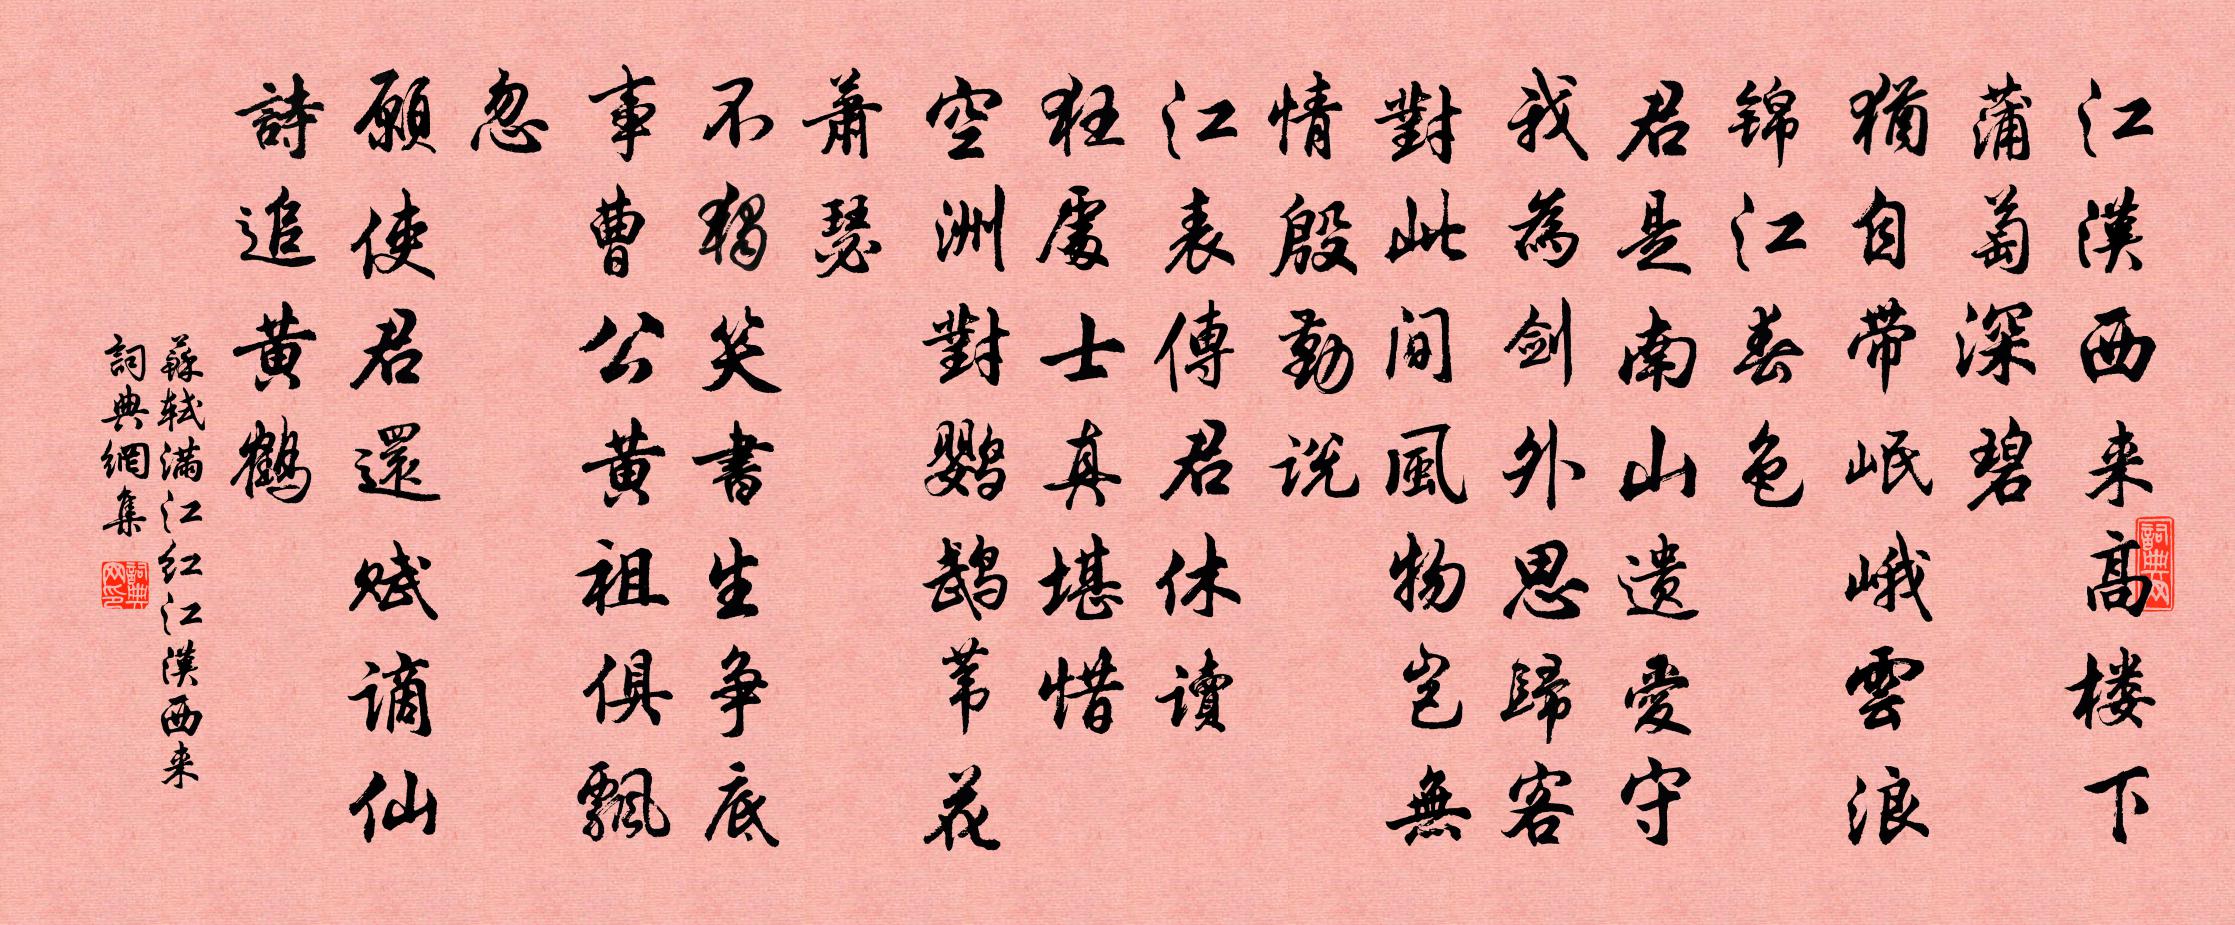 江漢西来高楼下
蒲萄深碧
猶自带岷峨雲浪
锦江春色
君是南山遗愛守
我為剑外思歸客
對此间風物岂無
情殷勤说
江表傳君休读
狂處士真堪惜
空洲對鹦鹉苇花
萧瑟
不独笑書生争底
事曹公黄祖俱飘
忽
願使君還赋谪仙
詩追黄鶴
蘇轼满江红江漢西来
詞典網集
詞典网
詞典网印